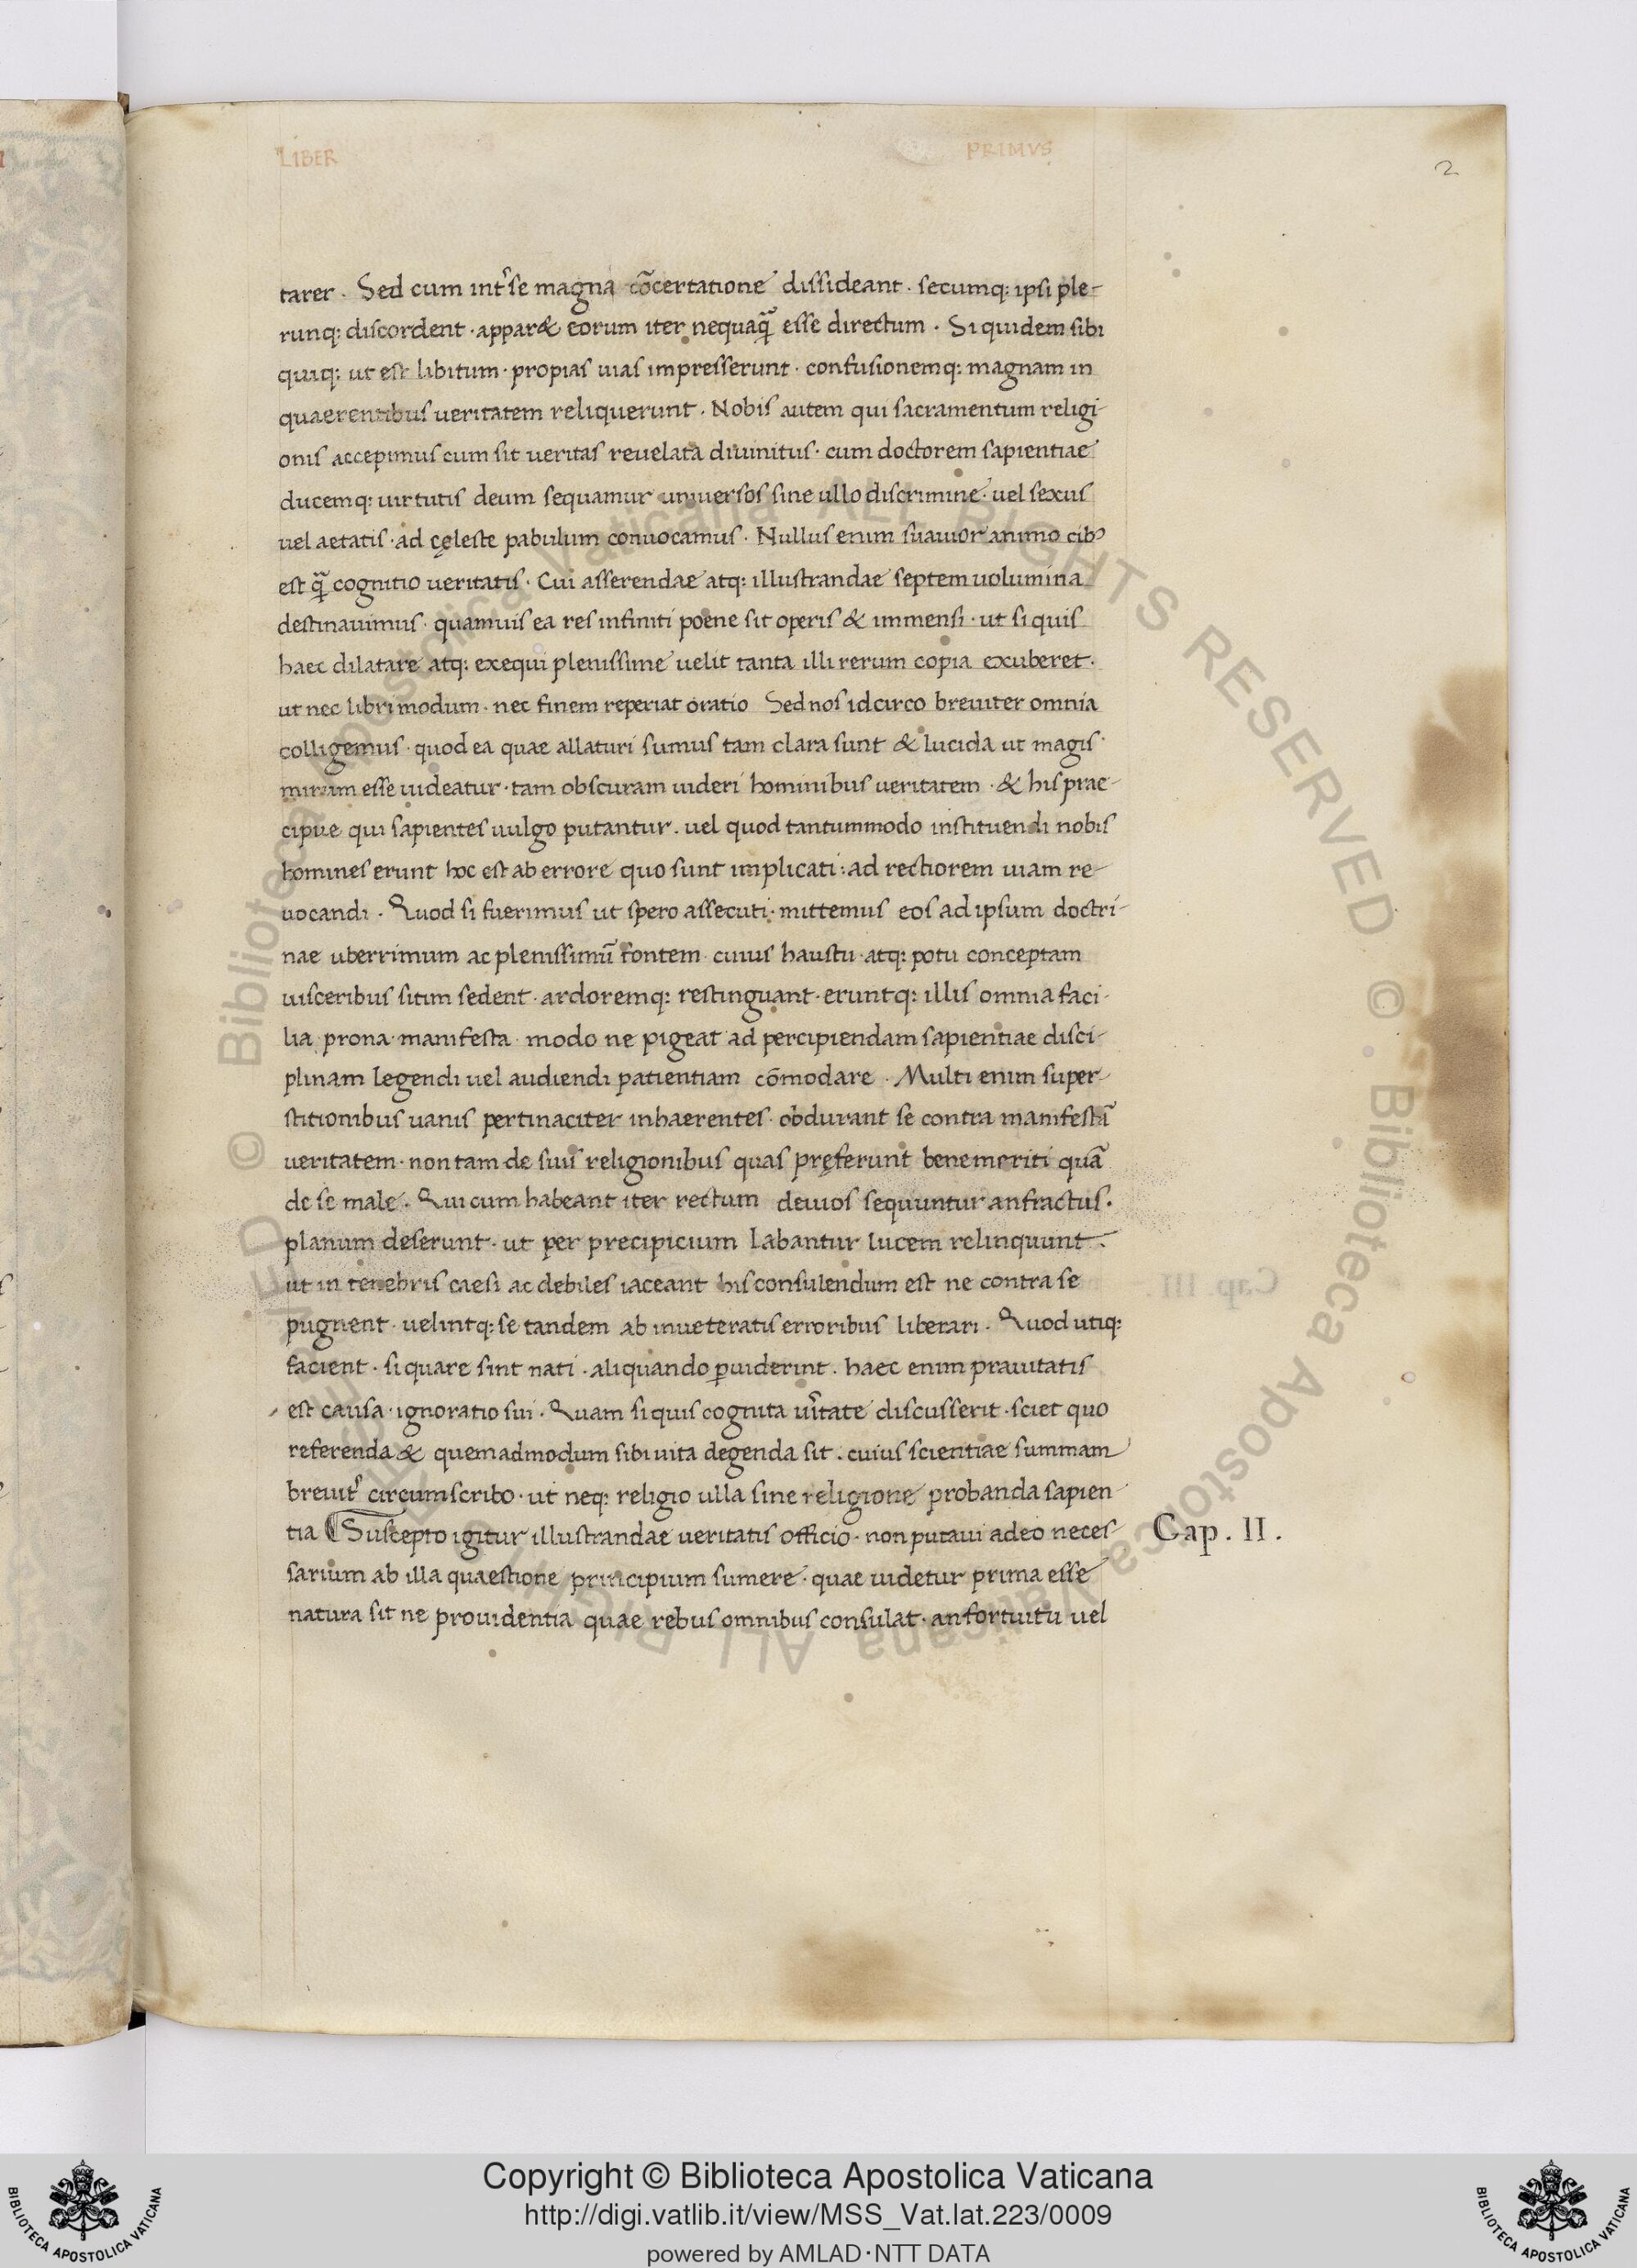 LIBER PRIMVS
2
tarer. Sed cum int̃ se magna cõcertatione dissideant. secumq: ipsi ple-
runq: discordent. apparet eorum iter nequaq̃ esse directum. Si quidem sibi
quiq: ut est libitum. propias uias impresserunt. confusionemq: magnam in
quaerentibus ueritatem reliquerunt. Nobis autem qui sacramentum religi-
onis accepimus cum sit ueritas reuelata diuinitus. cum doctorem sapientiae
ducemq: uirtutis deum sequamur uniuersos sine ullo discrimine. uel sexus
uel aetatis. ad cęleste pabulum conuocamus. Nullus enim suauior animo cibꝰ
est q̃ cognitio ueritatis. Cui asserendae atq: illustrandae septem uolumina
destinauimus. quamuis ea res infiniti poene sit operis & immensi. ut si quis
haec dilatare atq: exequi plenissime uelit tanta illi rerum copia exuberet.
ut nec libri modum. nec finem reperiat oratio Sed nos idcirco breuiter omnia
colligemus. quod ea quae allaturi sumus tam clara sunt & lucida ut magis
mirum esse uideatur. tam obscuram uideri hominibus ueritatem. & his prae-
cipue qui sapientes uulgo putantur. uel quod tantummodo instituendi nobis
homines erunt hoc est ab errore quo sunt implicati: ad rectiorem uiam re-
uocandi. Quod si fuerimus ut spero assecuti. mittemus eos ad ipsum doctri-
nae uberrimum ac plenissimũ fontem. cuius haustu. atq: potu conceptam
uisceribus sitim sedent. ardoremq: restinguant. eruntq: illis omnia faci-
lia prona manifesta modo ne pigeat ad percipiendam sapientiae disci-
plinam legendi uel audiendi patientiam cõmodare. Multi enim super-
stitionibus uanis pertinaciter inhaerentes. obdurant se contra manifestã
ueritatem. non tam de suis religionibus quas pręferunt bene meriti quã
de se male. Qui cum habeant iter rectum deuios sequuntur anfractus.
planum deserunt. ut per precipicium labantur lucem relinquunt.
ut in tenebris caesi ac debiles iaceant his consulendum est ne contra se
pugnent. uelintq: se tandem ab inueteratis erroribus liberari. Quod utiq:
facient. si quare sint nati. aliquando ꝑuiderint. haec enim prauitatis
est causa. ignoratio sui. Quam si quis cognita ũitate discusserit. sciet quo
referenda & quemadmodum sibi uita degenda sit. cuius scientiae summam
breuit̃ circumscribo. ut neq: religio ulla sine religione probanda sapien
tia ¶ Suscepto igitur illustrandae ueritatis officio. non putaui adeo neces-
Cap. II.
sarium ab illa quaestione principium sumere. quae uidetur prima esse
natura sit ne prouidentia quae rebus omnibus consulat. an fortuitu uel
Copyright © Biblioteca Apostolica Vaticana
http://digi.vatlib.it/view/MSS_Vat.lat.223/0009
powered by AMLAD·NTT DATA
BIBLIOTECA APOSTOLICA VATICANA
BIBLIOTECA APOSTOLICA VATICANA
© Biblioteca Apostolica Vaticana ALL RIGHTS RESERVED © Biblioteca Apostolica Vaticana ALL RIGHTS RESERVED